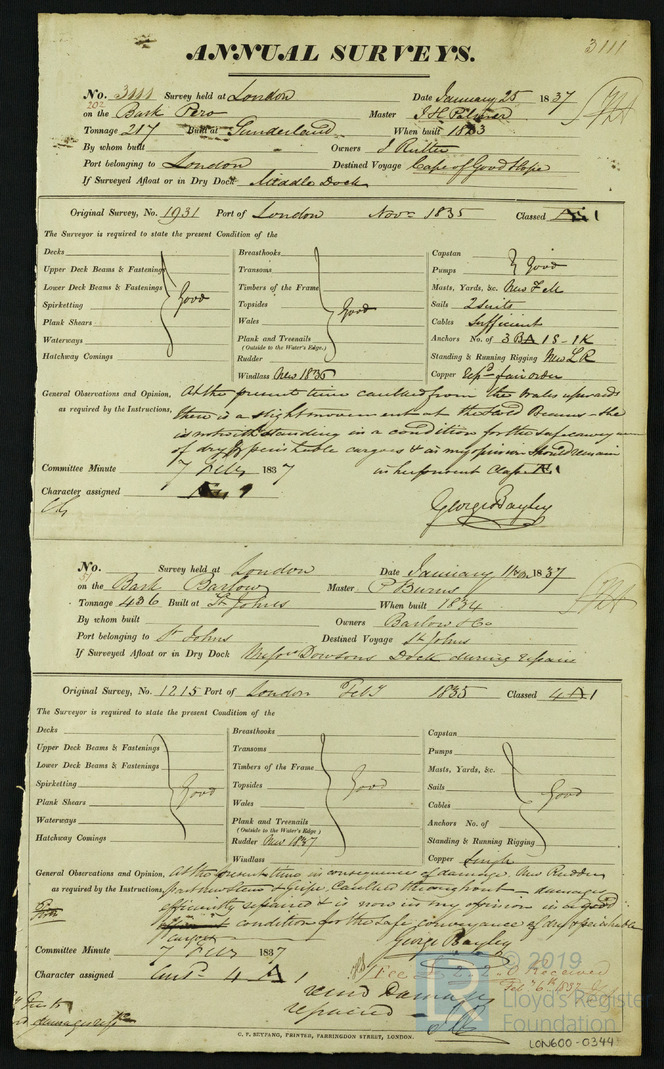 3111
ANNUAL SURVEYS.
No. 3111 Survey held at London Date January 25 1837
202
on the Bark Pero Master J H Palmer
Tonnage 217 Built at Sunderland When built 1823
By whom built Owners J Rutter
Port belonging to London Destined Voyage Cape of Good Hope
If Surveyed Afloat or in Dry Dock Middle Dock
Original Survey, No. 1931 Port of London Novr 1835 Classed 1
The Surveyor is required to state the present Condition of the
Decks Breasthooks Capstan
Upper Deck Beams & Fastenings Transoms Pumps Good
Lower Deck Beams & Fastenings Timbers of the Frame Masts, Yards, &c.
Spirketting Good Topsides Good Sails 2 suits
Plank Shears Wales Cables Sufficient
Waterways Plank and Treenails Anchors No. of 3 BA 1S-1K
(Outside to the Water's Edge.)
Hatchway Comings Rudder Standing & Running Rigging New L R
Windlass New 1835 Copper Repd fair order
General Observations and Opinion, At the present time caulked from the Wales upwards
as required by the Instructions, there is a slight movement at the Beams - she
is notwithstanding in a condition for the safe conveyance
of dry & perishable cargoes & in my opinion should remain
Committee Minute 7 Feby 1837 in her present Class
Character assigned
George Bayley
No. Survey held at London Date January 1837
on the Bark Barlow Master P Burns
Tonnage 436 Built at St Johns When built 1834
By whom built Owners Barlow & Co
Port belonging to St Johns Destined Voyage St Johns
If Surveyed Afloat or in Dry Dock Messrs Dowsons Dock during repair
Original Survey, No. 1215 Port of London Feby 1835 Classed 4 A 1
The Surveyor is required to state the present Condition of the
Decks Breasthooks Capstan
Upper Deck Beams & Fastenings Transoms Pumps
Lower Deck Beams & Fastenings Timbers of the Frame Masts, Yards, &c.
Spirketting Good Topsides Good Sails Good
Plank Shears Wales Cables
Waterways Plank and Treenails Anchors No. of
(Outside to the Water's Edge)
Hatchway Comings Rudder New 1837 Standing & Running Rigging
Windlass Copper Single
General Observations and Opinion, At the present time in consequence of damage New Rudder
as required by the Instructions, part new Stem & Gripe, Caulked throughout - damages
efficiently repaired & is now in my opinion in a good
condition for the safe conveyance of dry & perishable
cargoes
Committee Minute 7 Feby 1837 George Bayley
Character assigned 4 A
Fee £ 2.2.0 Received
Feby 6th 1837
Damages
repaired
© 2019
Lloyd's Register
Foundation
C. F. SEYFANG, PRINTER, FARRINGDON STREET, LONDON.
LON600-0344